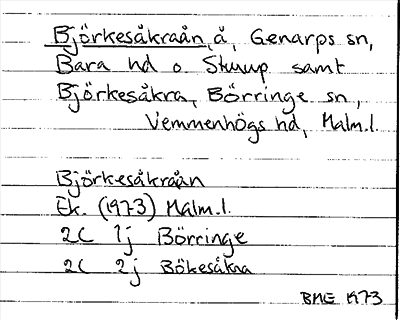 Björkesåkraån, å, Genarps sn,
Bara hd o. Sturup samt
Björkesåkra, Börringe sn,
Vemmenhögs hd, Malm.l.
Björkesåkraån
Ek. (1973) Malm.l.
2C 1j Börringe
2C 2j Bökesåkra
BME 1973